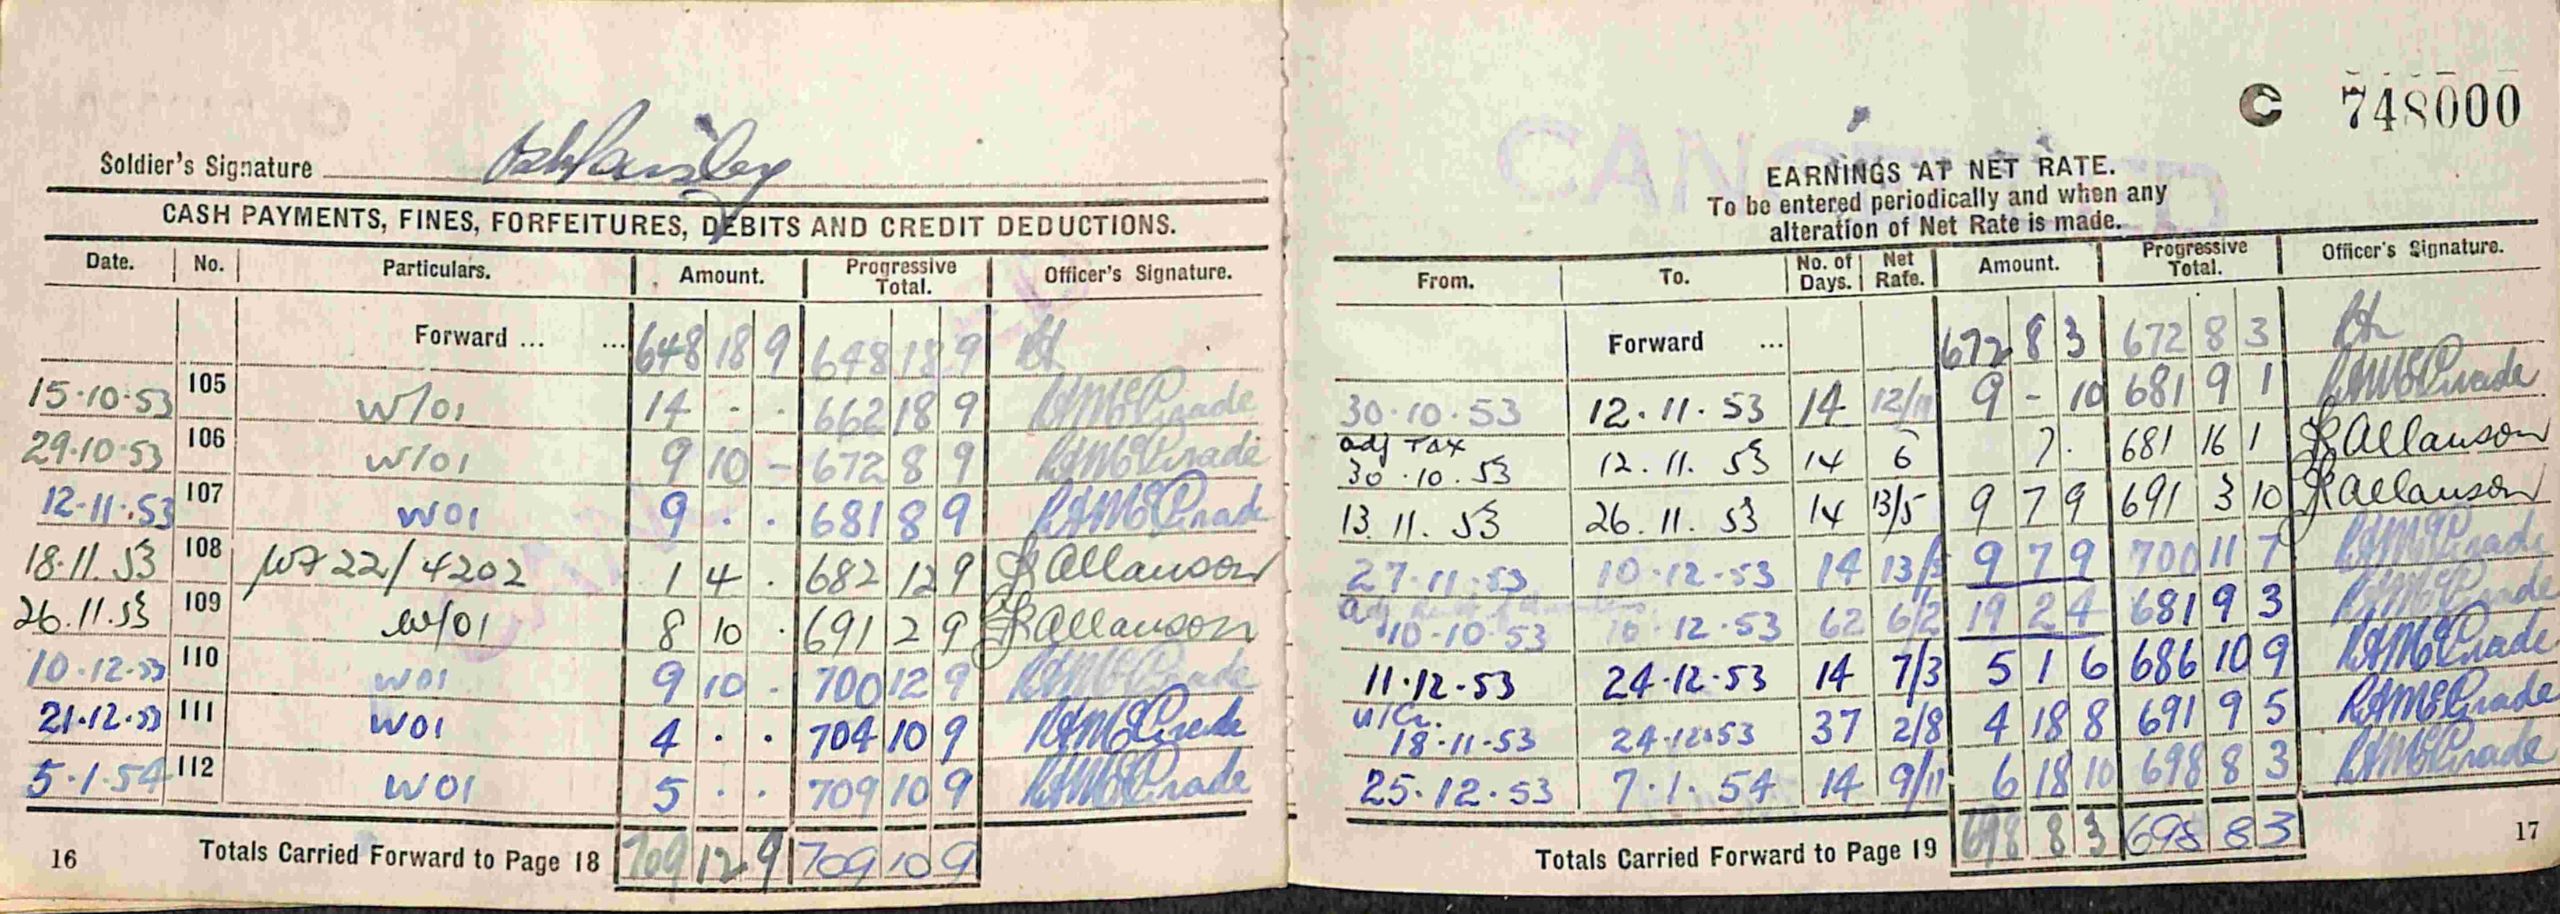 Soldier's Signature
CASH PAYMENTS, FINES, FORFEITURES, DEBITS AND CREDIT DEDUCTIONS.
Date. No. Particulars. Amount. Progressive Total. Officer's Signature.
Forward ... ... 648 18 9 648 18 9
15·10·53 105 W/01 14 - · 662 18 9
29·10·53 106 W/01 9 10 - 672 8 9
12·11·53 107 W01 9 · · 681 8 9
18·11·53 108 22/4202 1 4 · 682 12 9 Allanson
26.11.53 109 W/01 8 10 · 691 2 9 Allanson
10·12·53 110 W01 9 10 · 700 12 9
21·12·53 111 W01 4 · · 704 10 9
5·1·54 112 W01 5 · · 709 10 9
Totals Carried Forward to Page 18 709 12 9 709 10 9
16
C 748000
CANCELLED
EARNINGS AT NET RATE.
To be entered periodically and when any
alteration of Net Rate is made.
From. To. No. of Days. Net Rate. Amount. Progressive Total. Officer's Signature.
Forward ... 672 8 3 672 8 3
30·10·53 12·11·53 14 12/11 9 - 10 681 9 1
adj Tax
30·10·53 12.11.53 14 6 7 · 681 16 1 Allanson
13.11.53 26.11.53 14 13/5 9 7 9 691 3 10 Allanson
27·11·53 10·12·53 14 13/5 9 7 9 700 11 7
adj
10·10·53 10·12·53 62 6/2 19 2 4 681 9 3
11·12·53 24·12·53 14 7/3 5 1 6 686 10 9
u/Cr.
18·11·53 24·12·53 37 2/8 4 18 8 691 9 5
25·12·53 7·1·54 14 9/11 6 18 10 698 8 3
Totals Carried Forward to Page 19 698 8 3 698 8 3
17